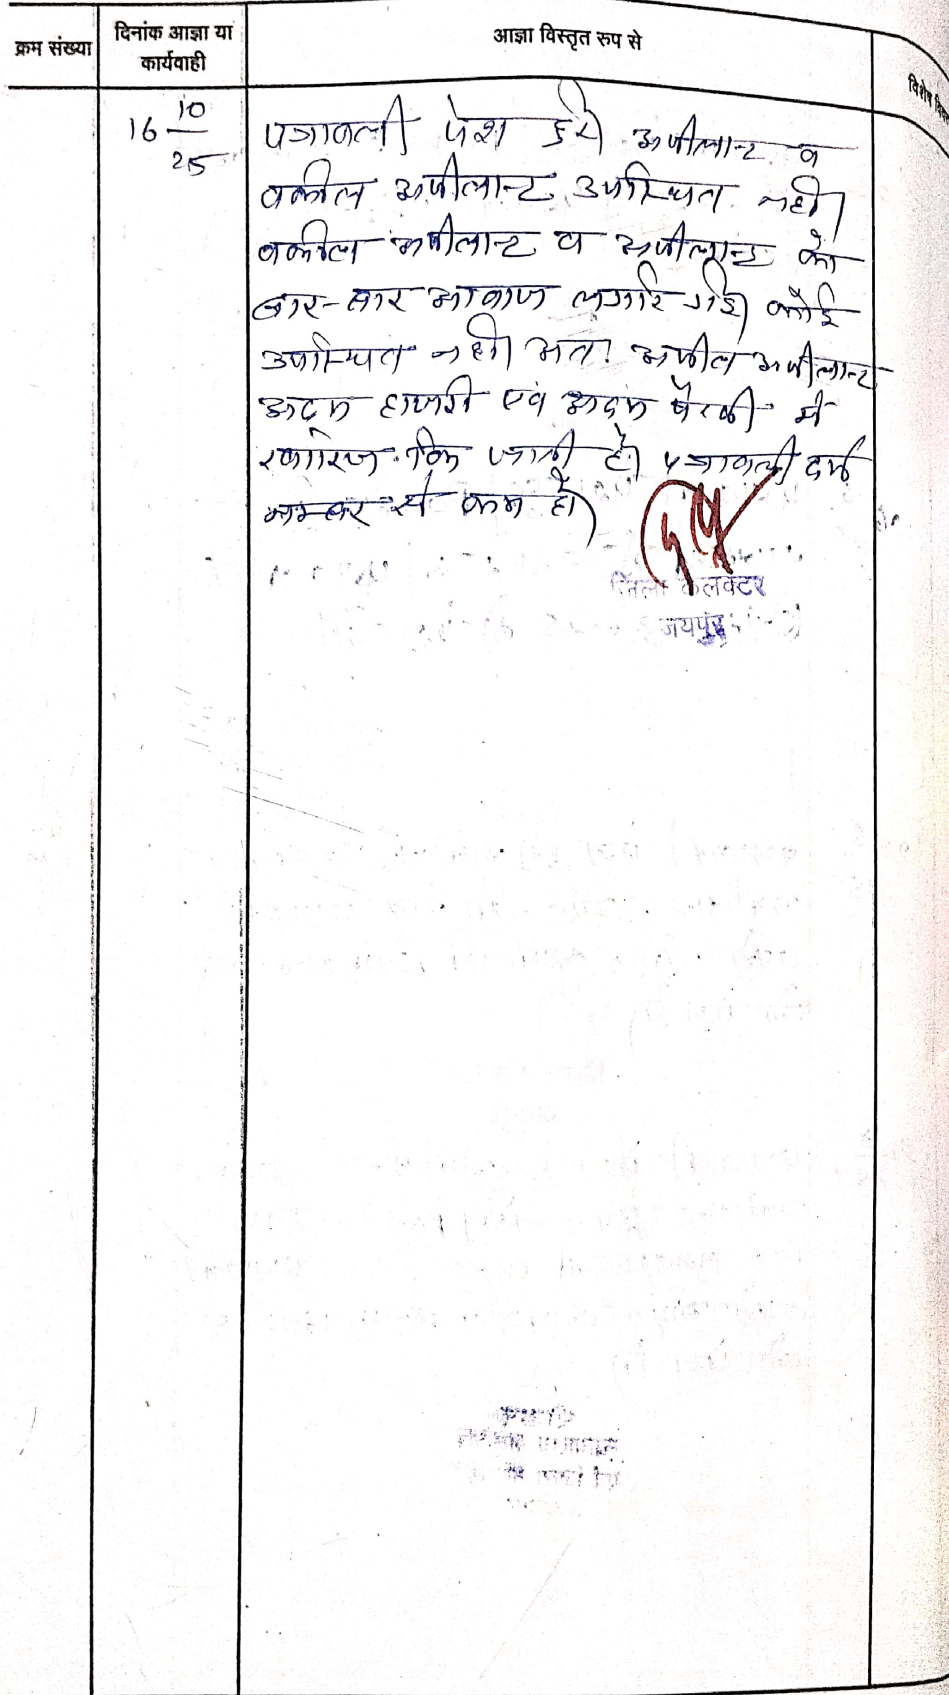 क्रम संख्या
दिनांक आज्ञा या
कार्यवाही
आज्ञा विस्तृत रुप से
विशेष
16 10
25
पत्रावली पेश हुई। अपीलान्ट व
वकील अपीलान्ट उपस्थित नही।
वकील अपीलान्ट व अपीलान्ट को
बार-बार आवाज लगाई गई। कोई
उपस्थित नही। अतः अपील अपीलान्ट
अदम हाजरी एवं अदम पैरवी में
खारिज कि जाती है। पत्रावली दर्ज
नम्बर से कम हो।
जिला कलक्टर
जयपुर